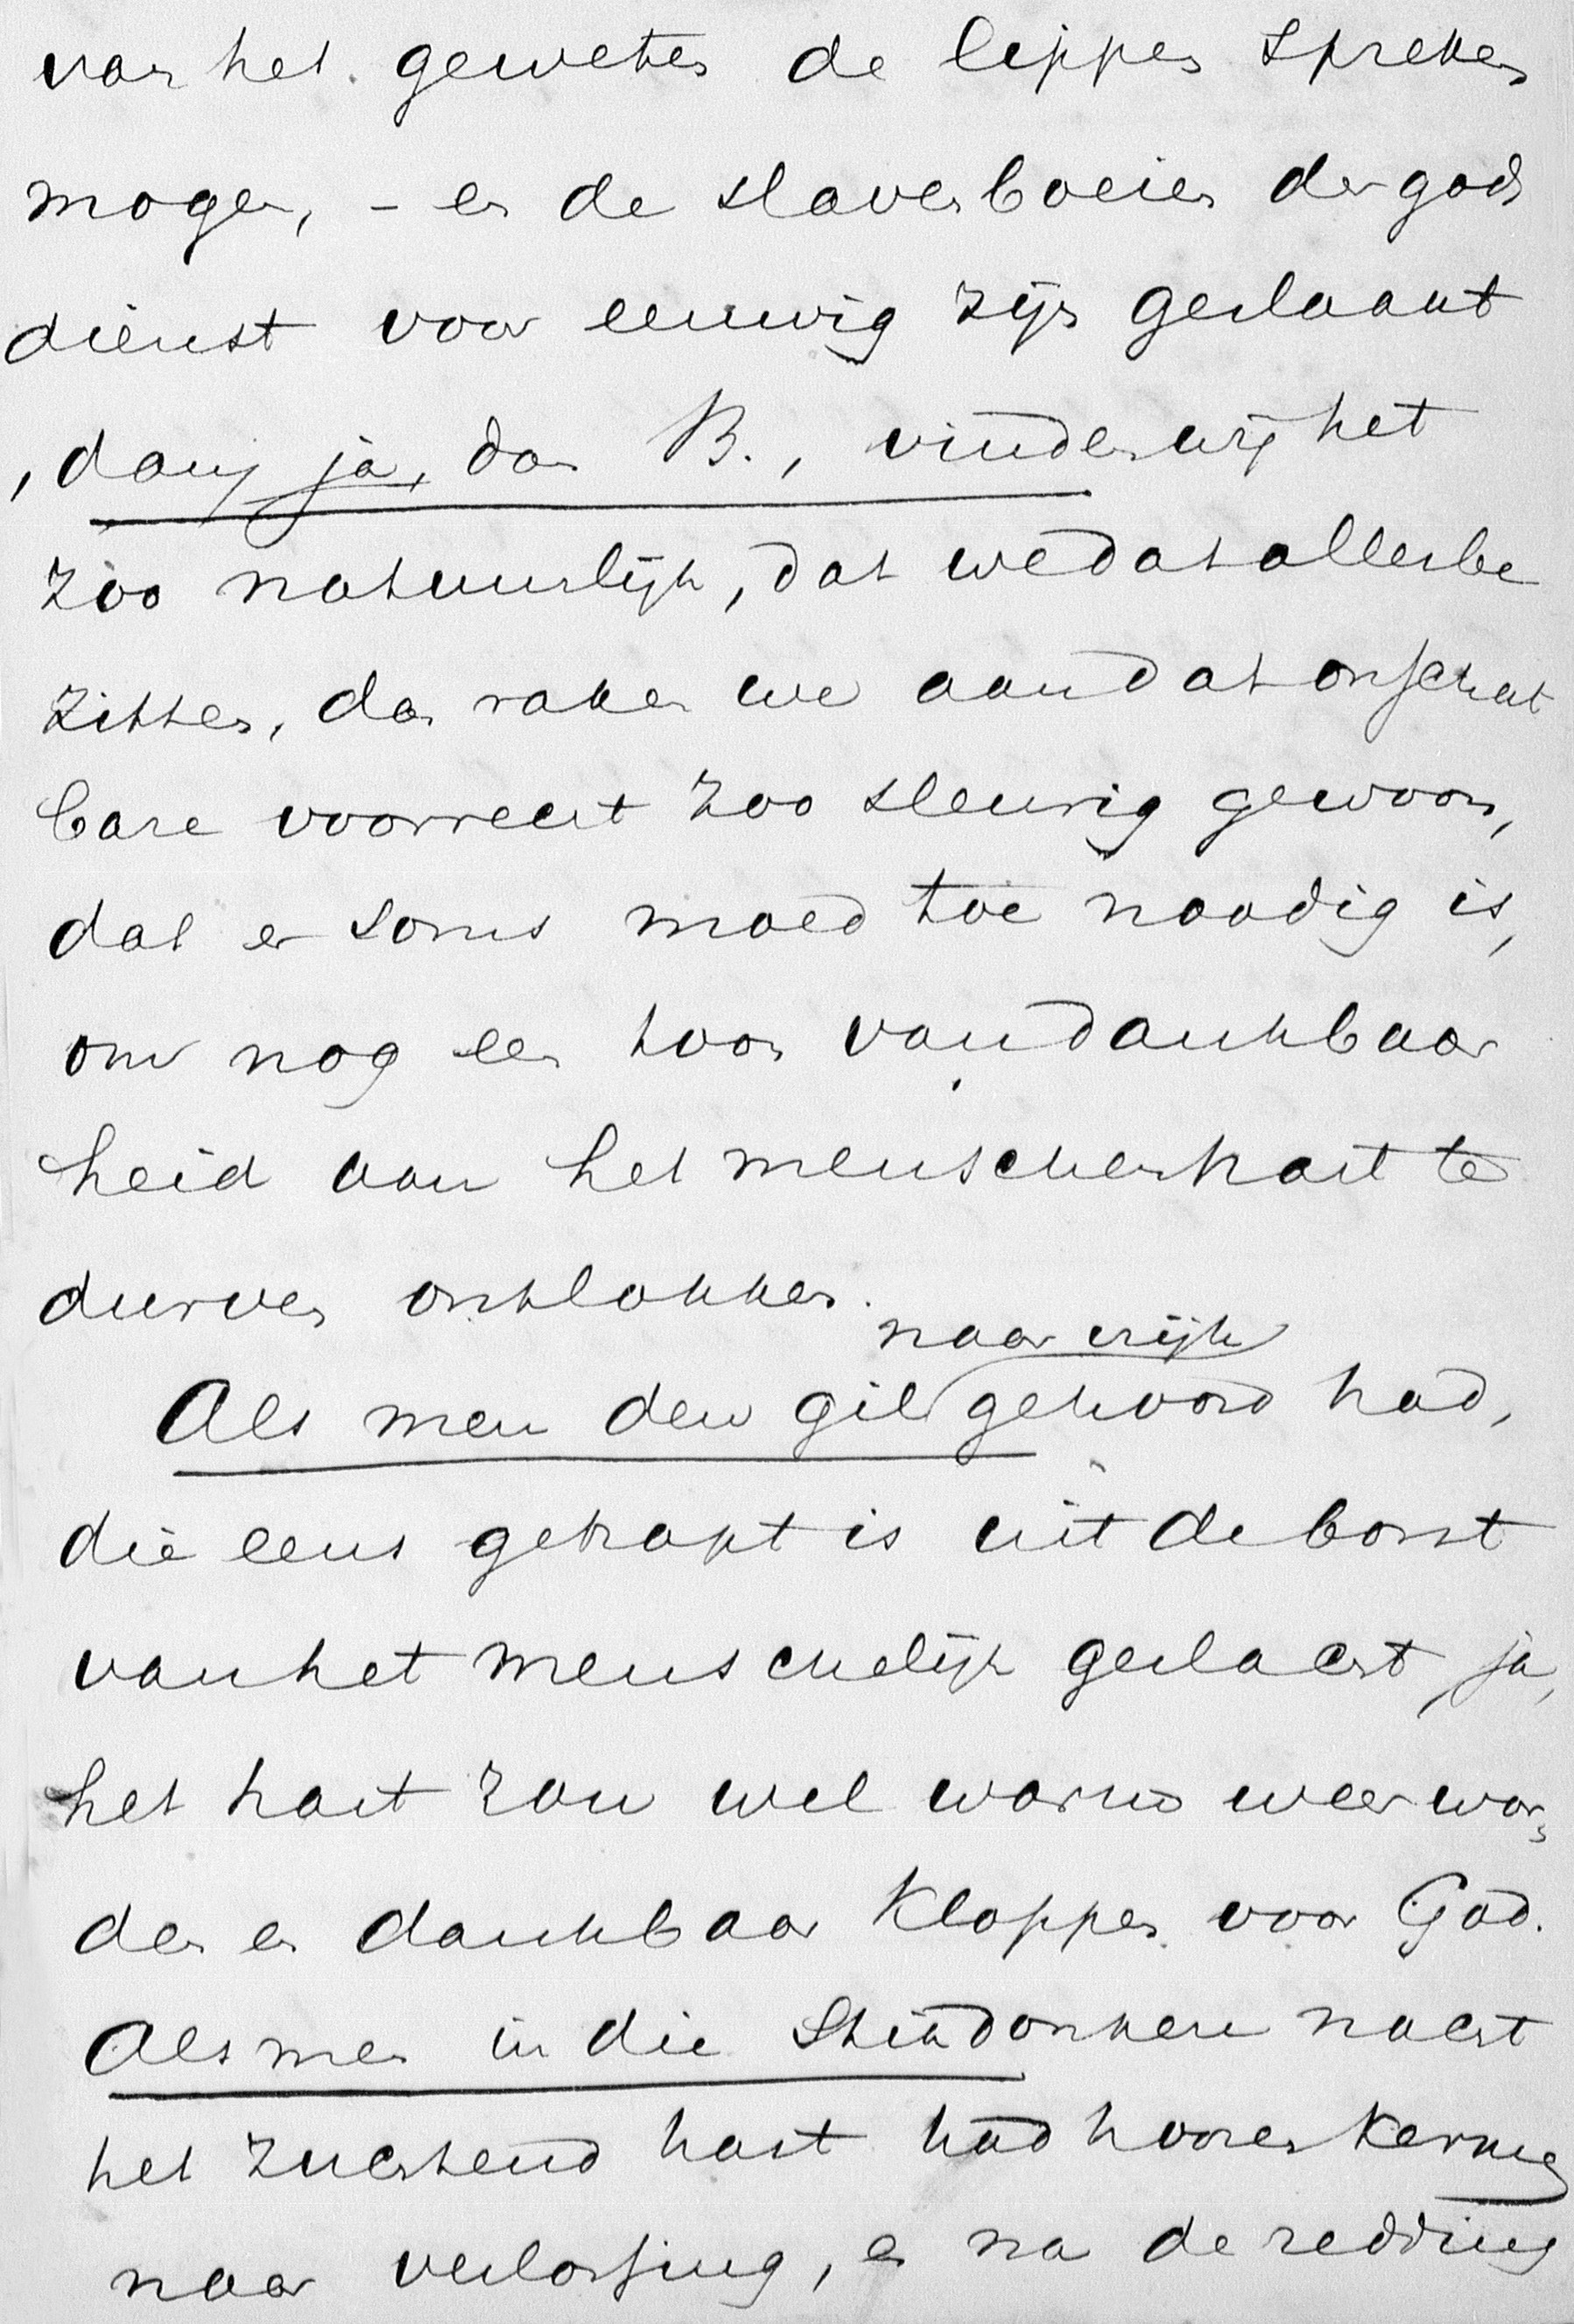 van het geweten de lippen spreken
mogen, - en de slavenboeien der gods
dienst voor eeuwig zijn geslaakt
, dan, ja, dan B., vinden wij het
zoo natuurlijk, dat we dat alles be
zitten, dan raken we aan dat onschat
bare voorrecht zoo sleurig gewoon,
dat er soms moed toe noodig is,
om nog een toon van dankbaar
heid aan het menschenhart te
durven ontlokken.
naar vrijh
Als men den gil gehoord had,
die eens getrapt is uit de borst
van het menschelijk geslacht ja,
het hart zou wel warm weer wor
den en dankbaar kloppen voor God.
Als men in die stikdonkere nacht
het zuchtend hart had hooren kermg
naar verlossing, en na de redding